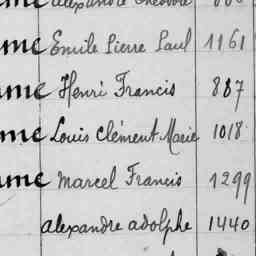 me alexandre Théodore
me Emile Pierre Paul 1161
me Henri Francis 887
me Louis Clément Marie 1018
me Marcel Francis 1299
alexandre adolphe 1440